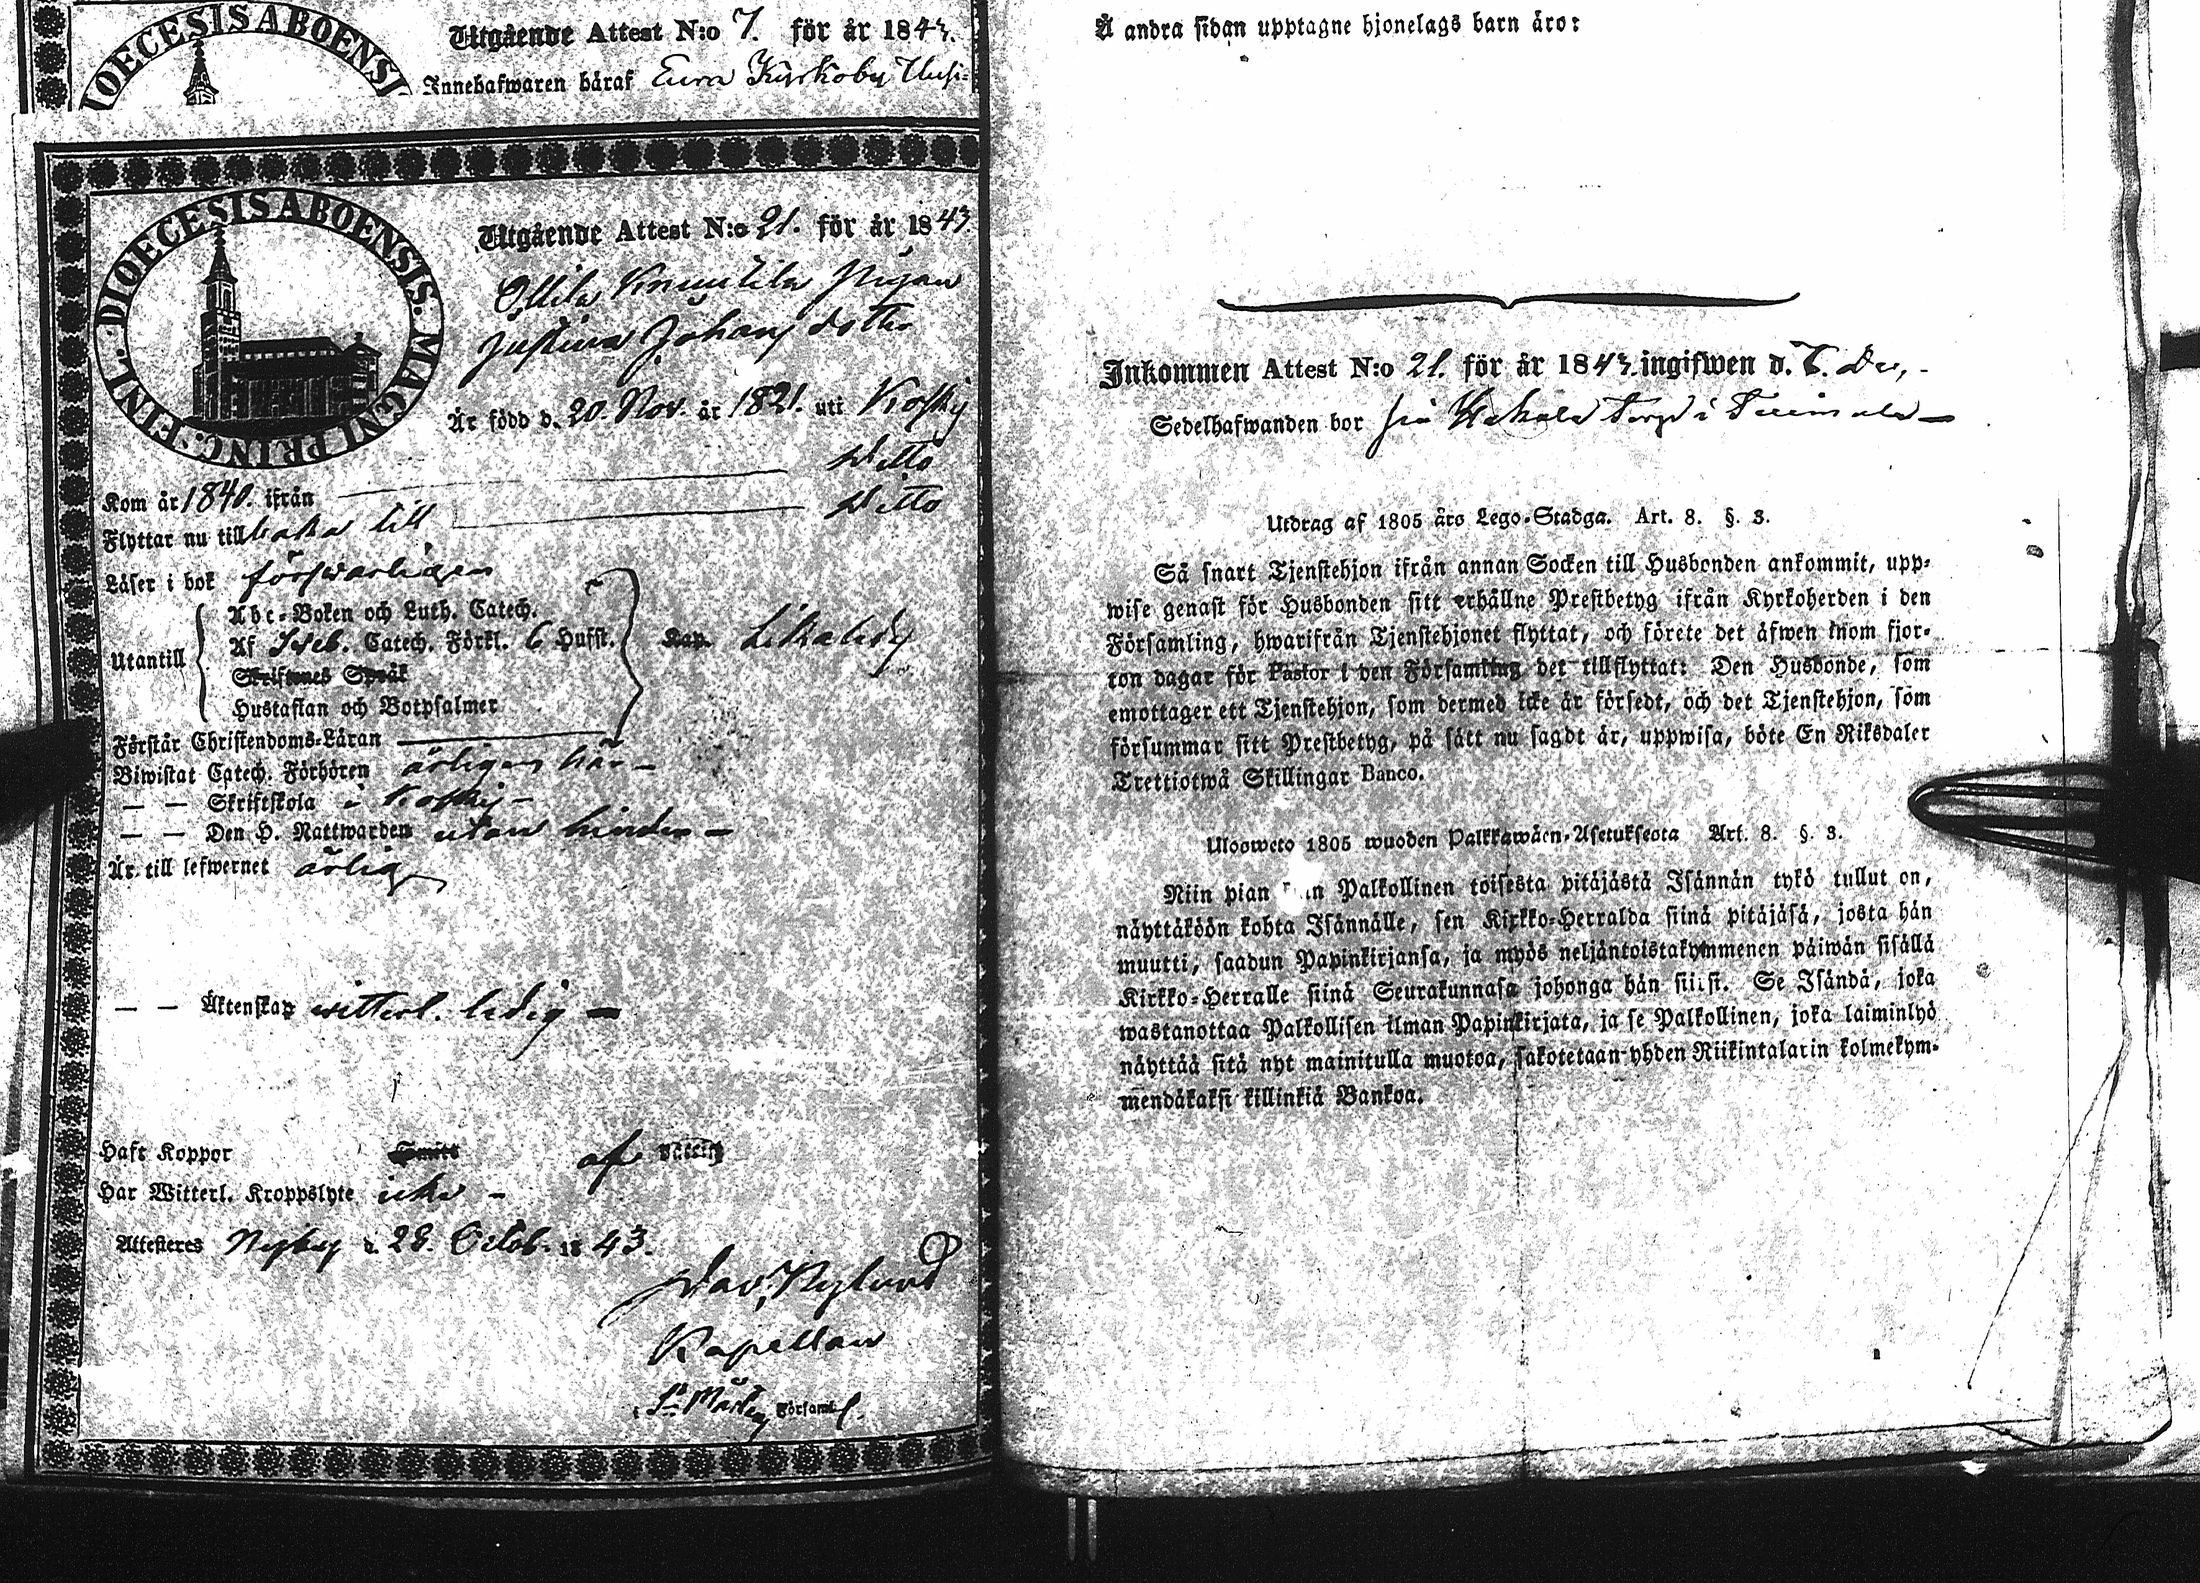 DIOECESIS ABOENSI
Utgående Attest N:o 7. för år 1843.
Innehafwaren häraf Eura Kyrkoby
DIOECESIS ABOENSIS. MAGNI PRINC. FINL.
Utgående Attest N:o 21. för år 1843.
Ollila Knuutila Pigan
Justina Johansdotter
Är född d. 20. Nov. år 1821. uti Koskij
Kom år 1840. ifrån Ditto
Flyttar nu tillbaka till Ditto
Läser i bok förswarligen
Utantill
Abc-Boken och Luth. Catech.
Af Catech. Förkl. 6 Hufst.
Skriftenes Språk
Hustaflan och Botpsalmer
Förstår Christendoms-Läran
Biwistat Catech. Förhören årligen här —
— — Skriftskola i Koskij —
— — Den H. Nattwarden utan hinder —
Är till lefwernet ärlig
— — Äktenskap witterl. ledig —
Haft Koppor
Har Witterl. Kroppslyte icke —
Attesteras Nyby d. 28. Octob. 1843.
Dav. Nylund
Kapellan
St Mårtens Församl.
Å andra sidan upptagne hjonelags barn äro:
Inkommen Attest N:o 21. för år 1843. ingifwen d.
Sedelhafwanden bor Torp i
Utdrag af 1805 års Lego-Stadga. Art. 8. §. 3.
Så snart Tjenstehjon ifrån annan Socken till Husbonden ankommit, upp-
wise genast för Husbonden sitt erhållne Prestbetyg ifrån Kyrkoherden i den
Församling, hwarifrån Tjenstehjonet flyttat, och förete det äfwen inom fjor-
ton dagar för Pastor i den Församling det tillflyttat: Den Husbonde, som
emottager ett Tjenstehjon, som dermed icke är försedt, och det Tjenstehjon, som
försummar sitt Prestbetyg, på sätt nu sagdt är, uppwisa, böte En Riksdaler
Trettiotwå Skillingar Banco.
Ulosweto 1805 wuoden Palkkawäen-Asetuksesta Art. 8. §. 3.
Niin pian Palkollinen toisesta pitäjästä Isännän tykö tullut on,
näyttäköön kohta Isännälle, sen Kirkko-Herralda siinä pitäjäsä, josta hän
muutti, saadun Papinkirjansa, ja myös neljäntoistakymmenen päiwän sisällä
Kirkko-Herralle siinä Seurakunnasa johonga hän siirsi. Se Isändä, joka
wastanottaa Palkollisen ilman Papinkirjata, ja se Palkollinen, joka laiminlyö
näyttää sitä nyt mainitulla muotoa, sakotetaan yhden Riikintalarin kolmekym-
mendäkaksi killinkiä Bankoa.